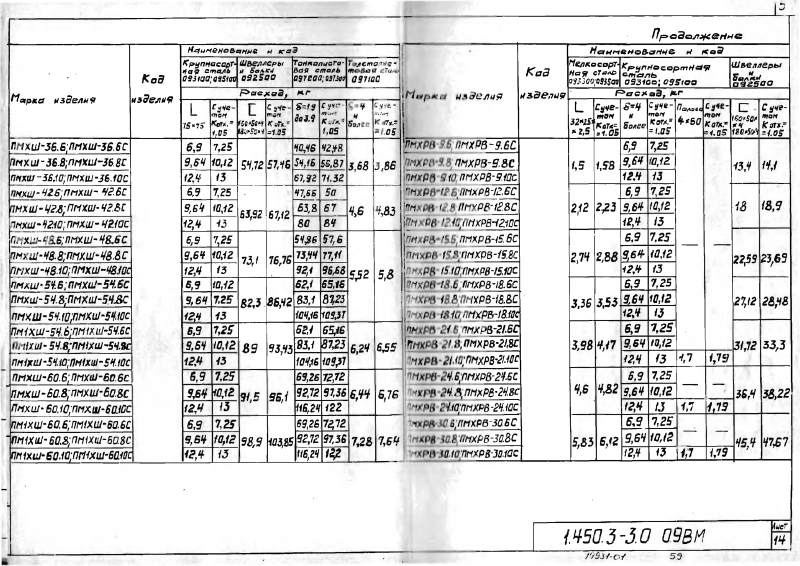 5
Продолжение
Наименование и код
Марка изделия
Код изделия
Крупносорт-ная сталь 093100; 095100
Швеллеры и балки 092500
Тонколисто-вая сталь 097200; 097300
Толстолис-товая сталь 097100
Расход, кг
L 75×75
С учё-том Котх.= 1,05
С уче-том Котх.= 1,05
δ=1,9 до 3,9
С уче-том Котх.= 1,05
δ=4 и более
С учё-том Котх.= 1,05
ПМХШ-36.6; ПМХШ-36.6С 6,9 7,25 40,46 42,48
ПМХШ-36.8; ПМХШ-36.8С 9,64 10,12 54,72 57,46 54,16 56,87 3,68 3,86
ПМХШ-36.10; ПМХШ-36.10С 12,4 13 67,92 71,32
ПМХШ-42.6; ПМХШ-42.6С 6,9 7,25 47,66 50
ПМХШ-42.8; ПМХШ-42.8С 9,64 10,12 63,92 67,12 63,8 67 4,6 4,83
ПМХШ-42.10; ПМХШ-42.10С 12,4 13 80 84
ПМХШ-48.6; ПМХШ-48.6С 6,9 7,25 54,86 57,6
ПМХШ-48.8; ПМХШ-48.8С 9,64 10,12 73,1 76,76 73,44 77,11
ПМХШ-48.10; ПМХШ-48.10С 12,4 13 92,1 96,68 5,52 5,8
ПМХШ-54.6; ПМХШ-54.6С 6,9 10,12 62,1 65,16
ПМХШ-54.8; ПМХШ-54.8С 9,64 7,25 82,3 86,42 83,1 87,23
ПМХШ-54.10; ПМХШ-54.10С 12,4 13 104,16 109,37
ПМ1ХШ-54.6; ПМ1ХШ-54.6С 6,9 7,25 62,1 65,16
ПМ1ХШ-54.8; ПМ1ХШ-54.8С 9,64 10,12 89 93,43 83,1 87,23 6,24 6,55
ПМ1ХШ-54.10; ПМ1ХШ-54.10С 12,4 13 104,16 109,37
ПМХШ-60.6; ПМХШ-60.6С 6,9 7,25 69,26 72,72
ПМХШ-60.8; ПМХШ-60.8С 9,64 10,12 91,5 96,1 92,72 97,36 6,44 6,76
ПМХШ-60.10; ПМХШ-60.10С 12,4 13 116,24 122
ПМ1ХШ-60.6; ПМ1ХШ-60.6С 6,9 7,25 69,26 72,72
ПМ1ХШ-60.8; ПМ1ХШ-60.8С 9,64 10,12 98,9 103,85 92,72 97,36 7,28 7,64
ПМ1ХШ-60.10; ПМ1ХШ-60.10С 12,4 13 116,24 122
Наименование и код
Марка изделия
Код изделия
Мелкосорт-ная сталь 093300; 093500
Крупносортная сталь 093100; 095100
Швеллеры и балки 092500
Расход, кг
L 32×25× × 2,5
С учё-том Котх.= =1.05
δ=4 и более
С учё-том Котх.= =1.05
Полоса 4×60
С учё-том Котх.= =1.05
С учё-том Котх.= =1.05
ПМХРВ-9.6; ПМХРВ-9.6С 6,9 7,25
ПМХРВ-9.8; ПМХРВ-9.8С 1,5 1,58 9,64 10,12 13,4 14,1
ПМХРВ-9.10; ПМХРВ-9.10С 12,4 13
ПМХРВ-12.6; ПМХРВ-12.6С 6,9 7,25
ПМХРВ-12.8; ПМХРВ-12.8С 2,12 2,23 9,64 10,12 18 18,9
ПМХРВ-12.10; ПМХРВ-12.10С 12,4 13
ПМХРВ-15.6; ПМХРВ-15.6С 6,9 7,25 — —
ПМХРВ-15.8; ПМХРВ-15.8С 2,74 2,88 9,64 10,12 22,59 23,69
ПМХРВ-15.10; ПМХРВ-15.10С 12,4 13
ПМХРВ-18.6; ПМХРВ-18.6С 6,9 7,25
ПМХРВ-18.8; ПМХРВ-18.8С 3,36 3,53 9,64 10,12 27,12 28,48
ПМХРВ-18.10; ПМХРВ-18.10С 12,4 13
ПМХРВ-21.6; ПМХРВ-21.6С 6,9 7,25
ПМХРВ-21.8; ПМХРВ-21.8С 3,98 4,17 9,64 10,12 31,72 33,3
ПМХРВ-21.10; ПМХРВ-21.10С 12,4 13 1,7 1,79
ПМХРВ-24.6; ПМХРВ-24.6С 6,9 7,25
ПМХРВ-24.8; ПМХРВ-24.8С 4,6 4,82 9,64 10,12 — — 36,4 38,22
ПМХРВ-24.10; ПМХРВ-24.10С 12,4 13 1,7 1,79
ПМХРВ-30.6; ПМХРВ-30.6С 6,9 7,25
ПМХРВ-30.8; ПМХРВ-30.8С 5,83 6,12 9,64 10,12 — — 45,4 47,67
ПМХРВ-30.10; ПМХРВ-30.10С 12,4 13 1,7 1,79
1.450.3-3.0 09ВМ
Лист 14
59